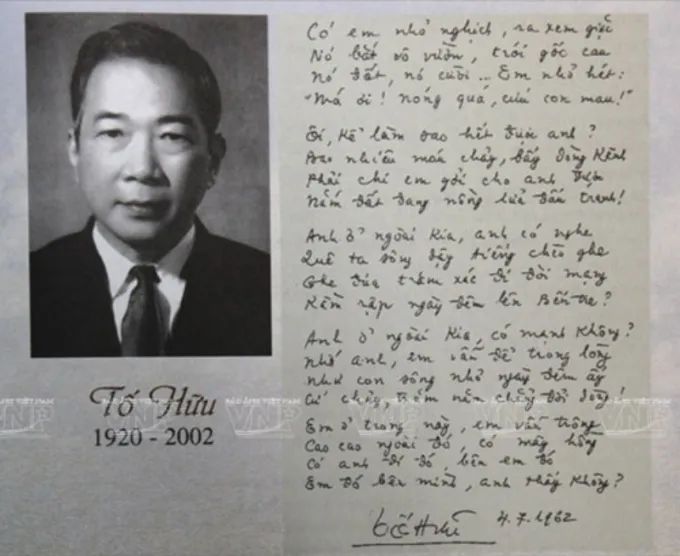 Có em nhỏ nghịch, ra xem giặc
Nó bắt vô vườn, trói gốc cau
Nó đốt, nó cười... Em nhỏ hét:
"Má ơi! nóng quá, cứu con mau!"
Ôi, kể làm sao hết được anh?
Bao nhiêu máu chảy, bấy dòng kênh
Phải chi em gởi cho anh được
Nắm đất đang nồng lửa đấu tranh!
Anh ở ngoài kia, anh có nghe
Quê ta sông dậy tiếng chèo ghe
Ghe đưa trăm xác đi đòi mạng
Rầm rập ngày đêm lên Bến Tre?
Anh ở ngoài kia, có mạnh không?
Nhớ anh, em vẫn để trong lòng
Như con sông nhỏ ngày đêm ấy
Cứ chảy trăm năm chẳng đổi dòng!
Em ở trong này, em vẫn trông
Cao cao ngoài đó, có mây hồng
Có anh đi đó, bên em đó
Em đó bên mình, anh thấy không?
Tố Hữu 4.7.1962
Tố Hữu
1920 - 2002
BÁO ẢNH VIỆT NAM
VNP